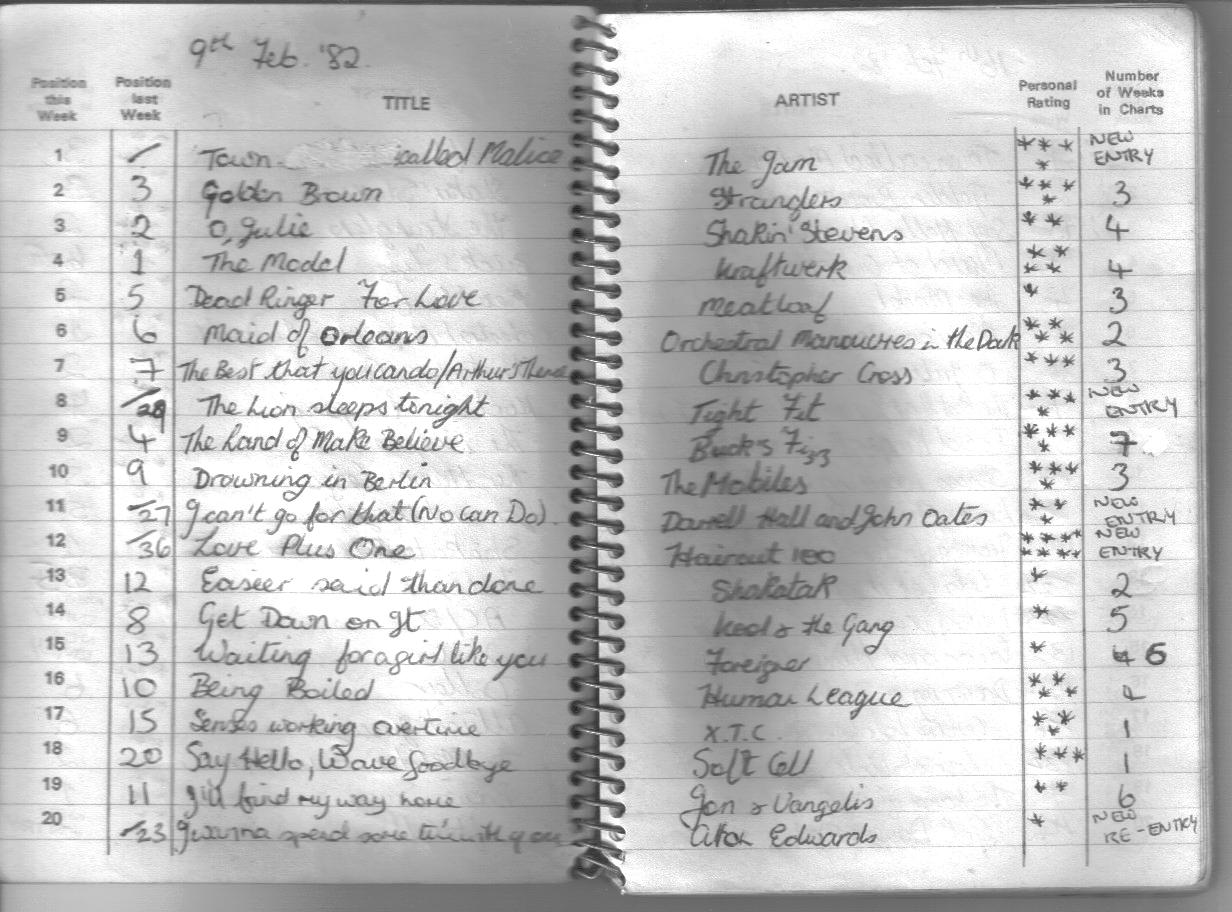 9th Feb. '82.
Position this Week Position last Week TITLE ARTIST Personal Rating Number of Weeks in Charts
1 / Town called Malice The Jam *** * NEW ENTRY
2 3 Golden Brown Stranglers *** * 3
3 2 O, Julie Shakin' Stevens ** 4
4 1 The Model Kraftwerk ** ** 4
5 5 Dead Ringer For Love Meatloaf * 3
6 6 Maid of Orleans Orchestral Manouvres in the Dark ** ** 2
7 7 The Best that you can do/Arthur's Theme Christopher Cross *** 3
8 /29 The Lion sleeps tonight Tight Fit *** * NEW ENTRY
9 4 The Land of Make Believe Buck's Fizz *** * 7
10 9 Drowning in Berlin The Mobiles *** * 3
11 /27 I can't go for that (No can Do) Darrell Hall and John Oates ** * NEW ENTRY
12 /36 Love Plus One Haircut 100 **** **** NEW ENTRY
13 12 Easier said than done Shakatak * 2
14 8 Get Down on It Kool & the Gang * 5
15 13 Waiting for a girl like you Foreigner * 6
16 10 Being Boiled Human League ** ** 4
17 15 Senses working overtime X.T.C. ** * 1
18 20 Say Hello, Wave Goodbye Soft Cell *** 1
19 11 I'll find my way home Jon & Vangelis ** 6
20 /23 I wanna spend some time with you Alton Edwards * NEW RE-ENTRY